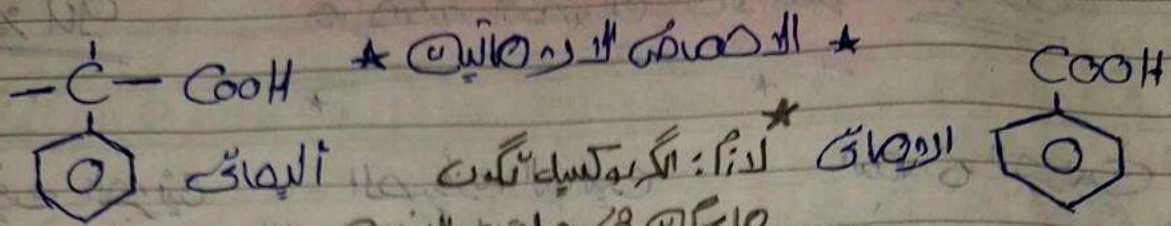 ★ الاحماض الاروماتية ★
COOH
– C – COOH
اروماتى
★ لازم: الكربوكسيل تكون
أليفاتى